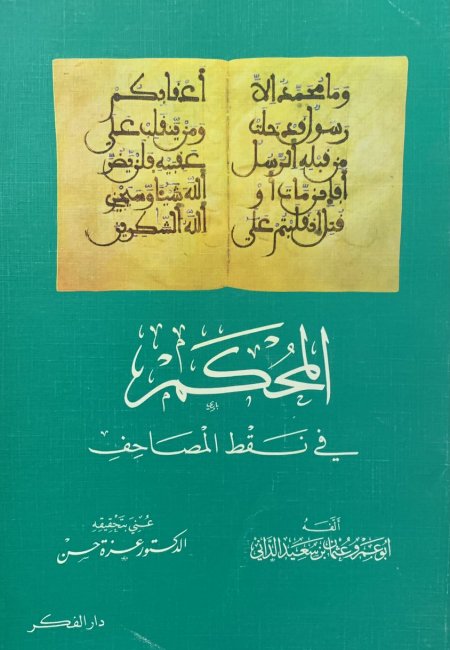 وما محمد الا
رسول قد خلت
من قبله الرسل
أفاين مات أو
قتل انقلبتم على
أعقابكم
ومن ينقلب على
عقبيه فلن يضر
الله شيئا وسيجزي
الله الشكرين
المُحْكَمُ
في نَقْطِ المَصَاحِفِ
ألّفَهُ
أبو عَمْرو عُثمان بن سَعيد الدّاني
عُنِيَ بتَحْقيقِهِ
الدكتور عزة حسن
دار الفكر